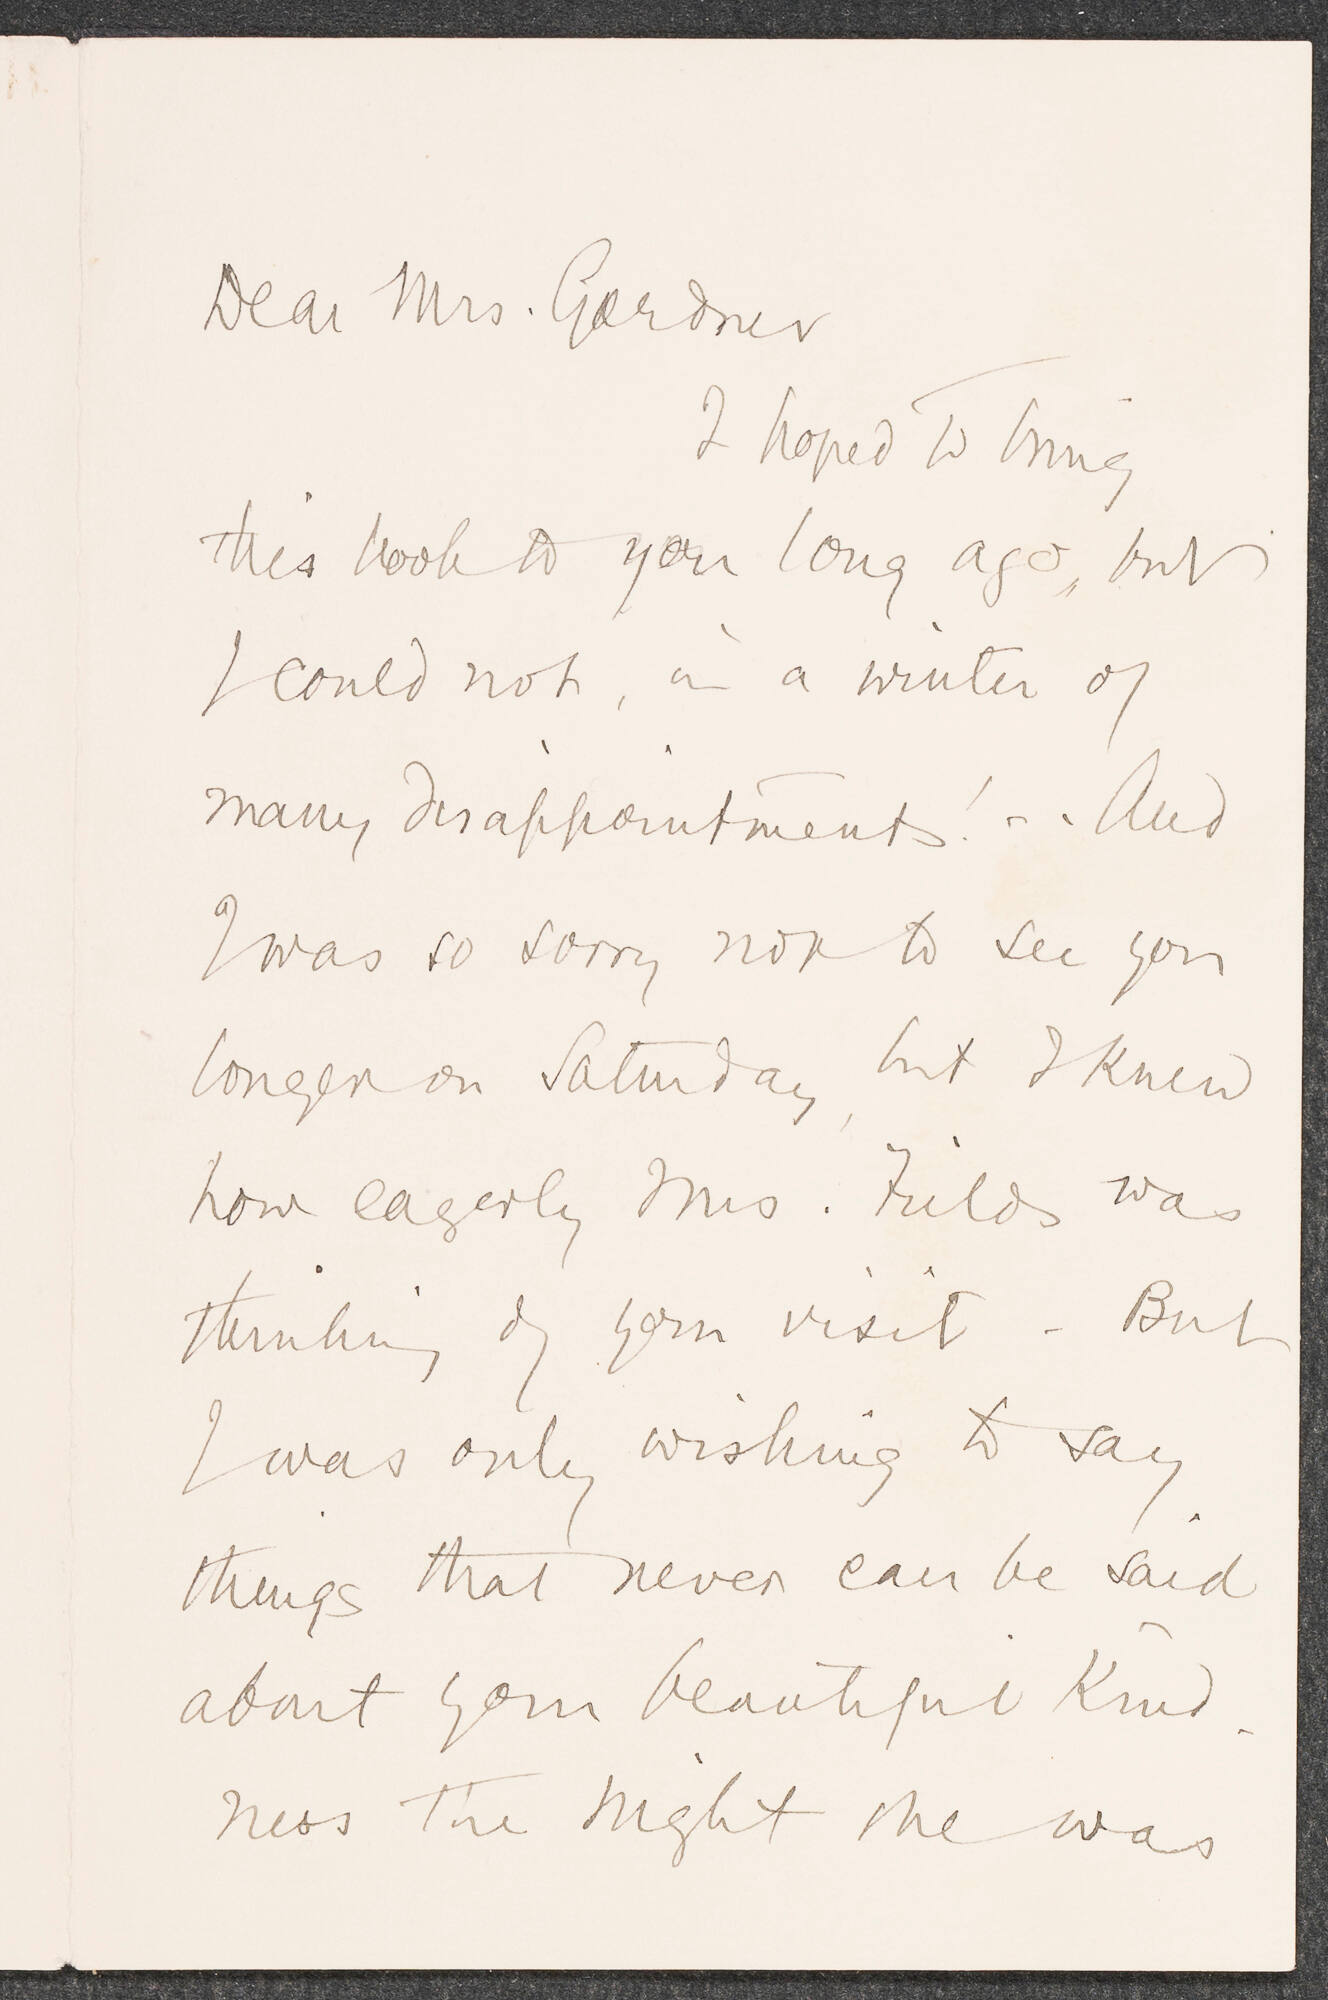 Dear Mrs. Gardner
I hoped to bring
this book to you long ago, but
I could not, in a winter of
many disappointments! - - And
I was so sorry not to see you
longer on Saturday, but I knew
how eagerly Mrs. Fields was
thinking of your visit - But
I was only wishing to say
things that never can be said
about your beautiful Kind-
ness the night she was